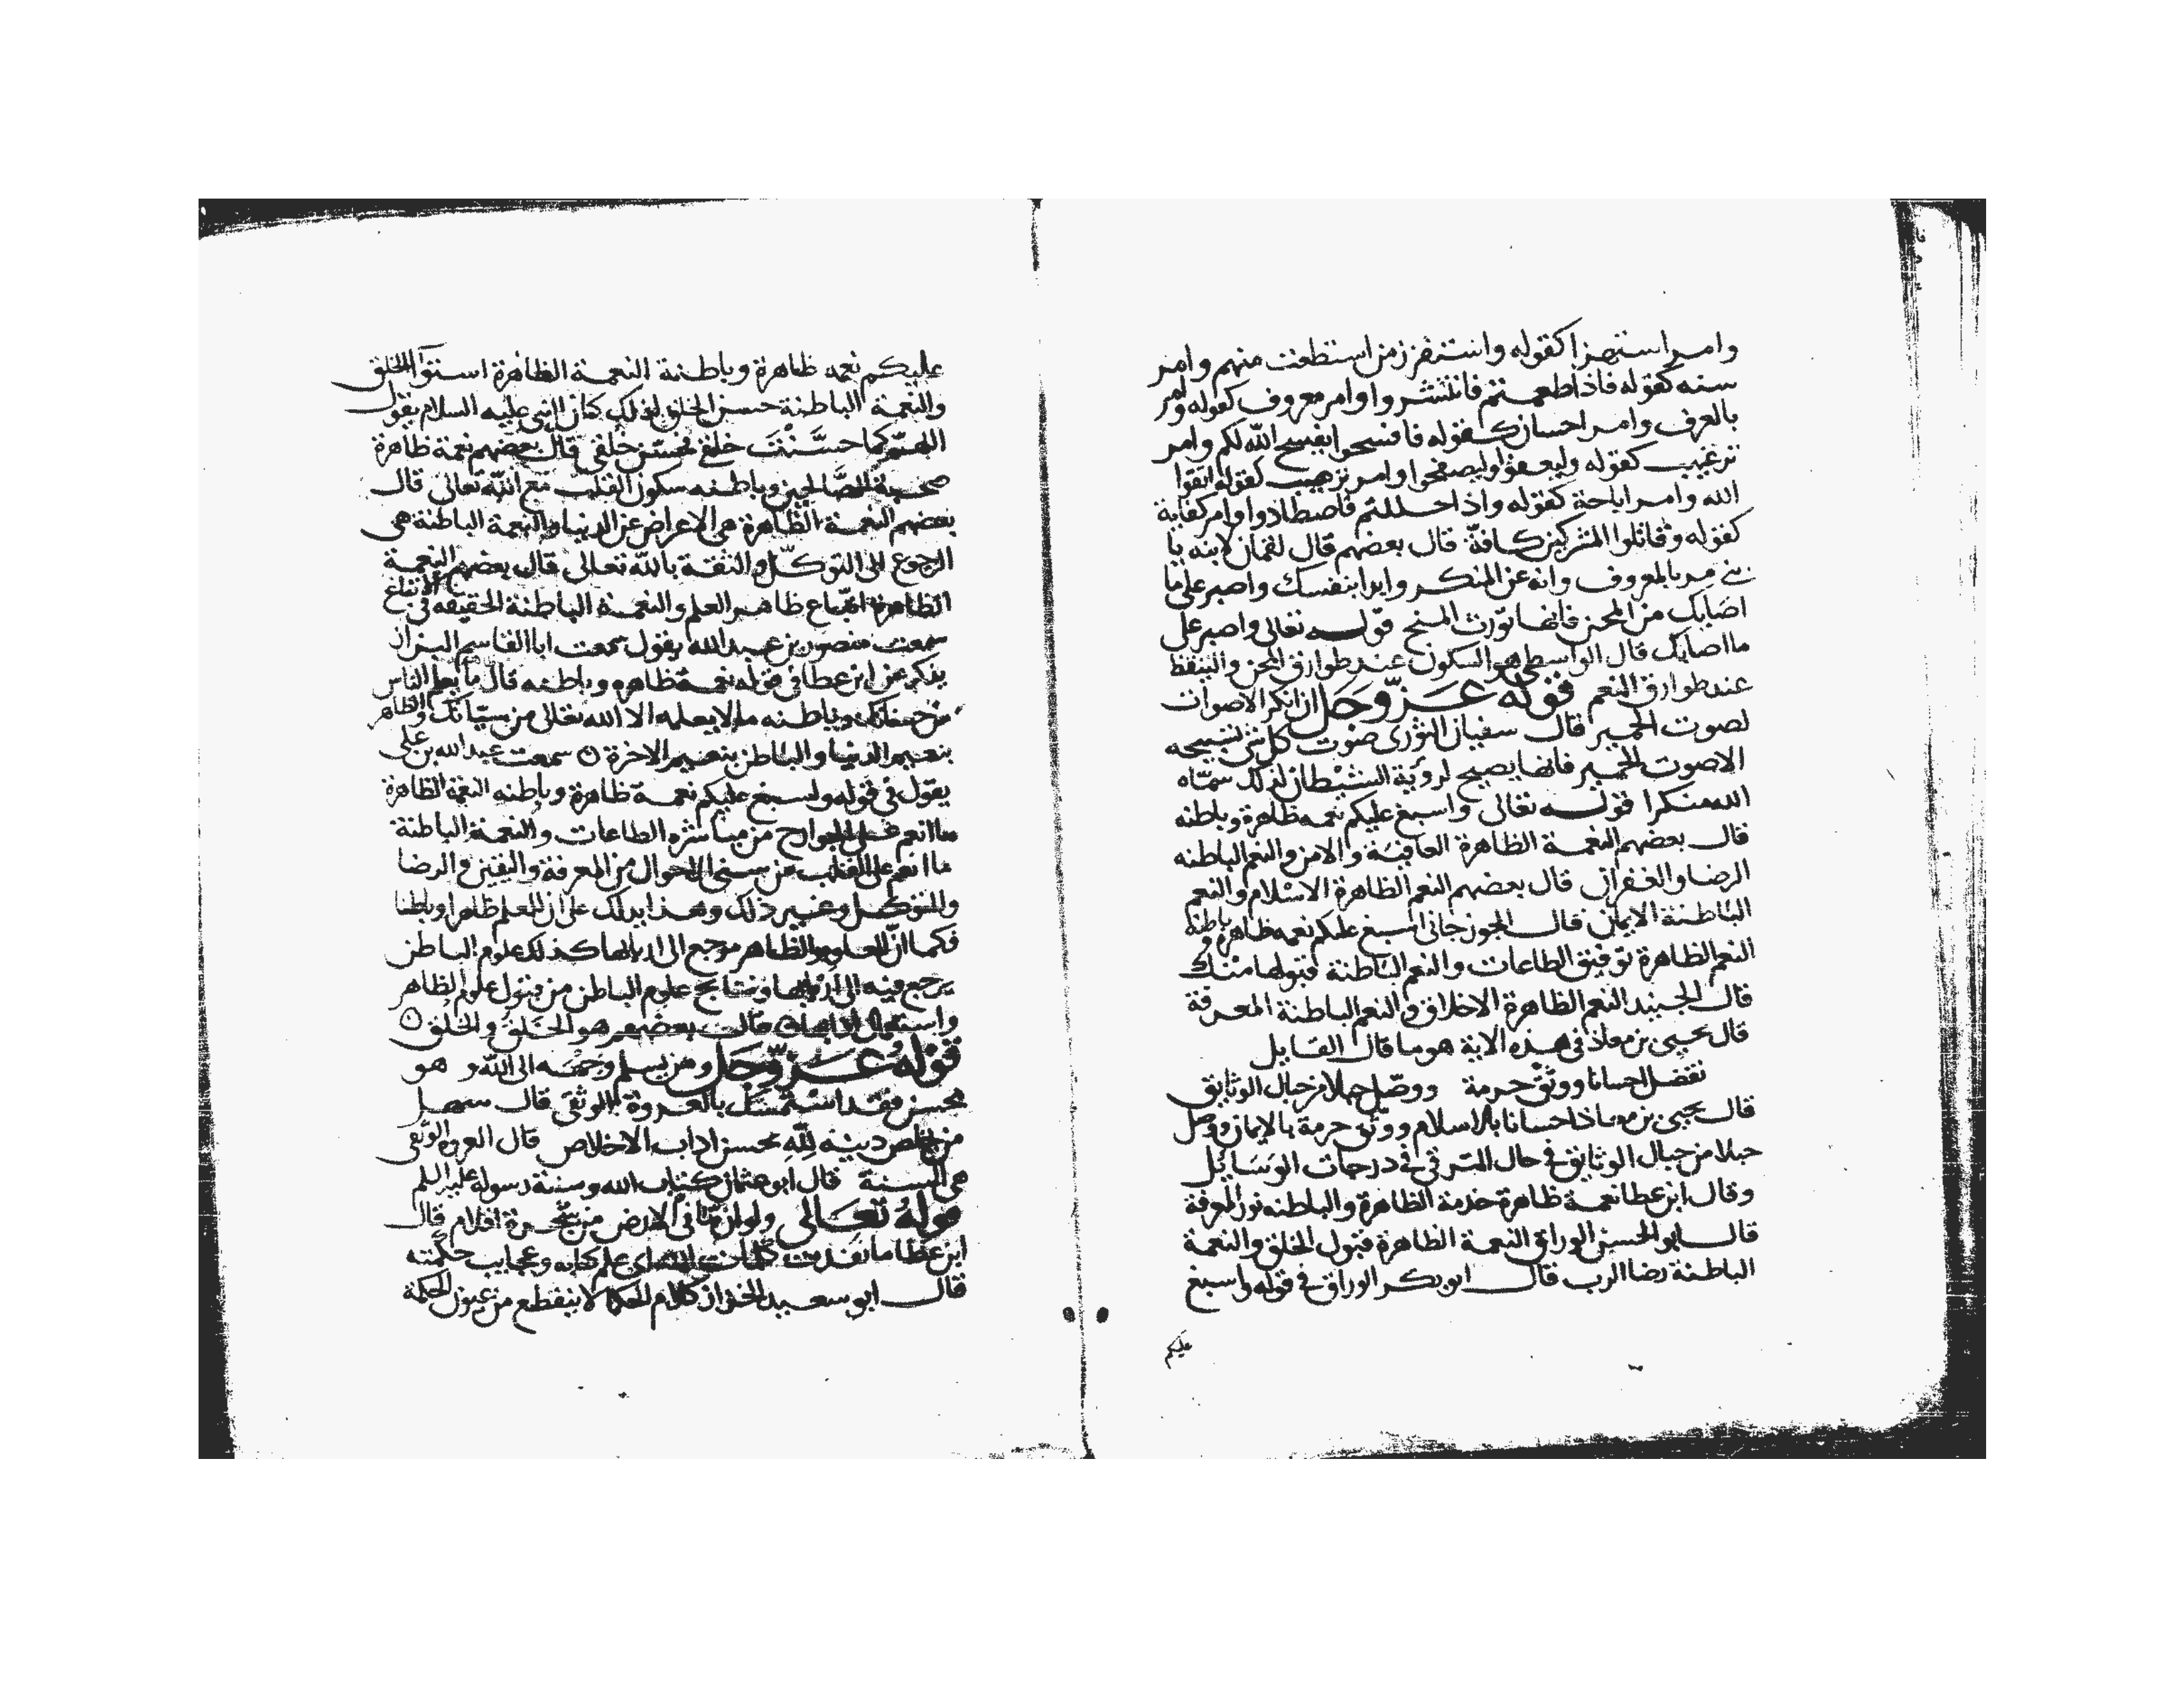 وامر استهزا كقوله واستفزز من استطعت منهم وامر
سنه كقوله فاذا طعمتم فانتشروا وامر معروف كقوله وامر
بالعرف وامر احسان كقوله فافسحوا يفسح الله لكم وامر
ترغيب كقوله وليعفوا وليصفحوا وامر ترهيب كقوله اتقوا
الله وامر اباحة كقوله واذا حللتم فاصطادوا وامر كفاية
كقوله وقاتلوا المشركين كافة قال بعضهم قال لقمان لابنه يا
بني مر بالمعروف وانه عن المنكر وابدا بنفسك واصبر على ما
اصابك من المحن فانها تورث المنح قوله تعالى واصبر على
ما اصابك قال الواسطي هو السكون عند طوارق المحن والتيقظ
عند طوارق النعم قوله عز وجل ان انكر الاصوات
لصوت الحمير قال سفيان الثورى صوت كل شى تسبيحه
الا صوت الحمير فانها يصيح لرؤية الشيطان لذلك سماه
الله منكرا قوله تعالى واسبغ عليكم نعمه ظاهرة وباطنه
قال بعضهم النعمة الظاهرة العافية والامن والنعم الباطنه
الرضا والغفران قال بعضهم النعم الظاهرة الاسلام والنعم
الباطنة الايمان قال الجوزجانى اسبغ عليكم نعمه ظاهرة وباطنة
النعم الظاهرة توفيق الطاعات والنعم الباطنة قبولها منك
قال الجنيد النعم الظاهرة الاخلاق والنعم الباطنة المعرفة
قال يحيى بن معاذ فى هذه الاية هو ما قال القايل
تفضل احسانا ووثق حرمة ووصل حبلا من حبال الوثايق
قال يحيى بن معاذ احسانا بالاسلام ووثق حرمة بالايمان ووصل
حبلا من حبال الوثايق فى حال الترقى فى درجات الوسايل
وقال ابن عطا نعمة ظاهرة خدمة الظاهرة والباطنه نور المعرفة
قال ابو الحسين الوراق النعمة الظاهرة قبول الخلق والنعمة
الباطنة رضا الرب قال ابو بكر الوراق فى قوله واسبغ
عليكم
عليكم نعمه ظاهرة وباطنة النعمة الظاهرة استوآ الخلق
والنعمة الباطنة حسن الخلق لذلك كان النبى عليه السلام يقول
اللهم كما حسنت خلقى فحسن خلقى قال بعضهم نعمة ظاهرة
صحبة الصالحين وباطنه سكون القلب مع الله تعالى قال
بعضهم النعمة الظاهرة هى الاعراض عن الدنيا والنعمة الباطنة هى
الرجوع الى التوكل والثقة بالله تعالى قال بعضهم النعمة
الظاهرة اتباع ظاهر العلم والنعمة الباطنة الحقيقه فى الاتباع
سمعت منصور بن عبد الله يقول سمعت ابا القاسم البزاز
يذكر عن ابن عطا فى قوله نعمة ظاهره وباطنه قال ما يعلم الناس
من حسناتك وباطنه ما لا يعلمه الا الله تعالى من سيئاتك والظاهر
بنعيم الدنيا والباطن بنعيم الاخرة سمعت عبد الله بن على
يقول فى قوله واسبغ عليكم نعمة ظاهرة وباطنه النعمة الظاهرة
ما انعم على الجوارح من مباشره الطاعات والنعمة الباطنة
ما انعم على القلب من سنى الاحوال من المعرفة واليقين والرضا
والتوكل وغير ذلك وهذا يدلك على ان للعلم ظاهرا وباطنا
فكما ان العلوم الظاهر مرجع الى اربابها كذلك علوم الباطن
يرجع فيه الى اربابها ونتايج علوم الباطن من قبول علوم الظاهر
واستعمال قال بعضهم هو الخلق والخلق
قوله عز وجل ومن يسلم وجهه الى الله وهو
محسن فقد استمسك بالعروة الوثقى قال سهل
من اخلص دينه لله بحسن اداب الاخلاص قال العروه الوثقى
هى السنة قال ابو عثمان كتاب الله وسنة رسوله عليه السلم
قوله تعالى ولو ان ما فى الارض من شجرة اقلام قال
ابن عطا ما نفدت كلمات الله اى علم كتابه وعجايب حكمته
قال ابو سعيد الخراز كلام الحكما لا ينقطع من عيون الحكمة